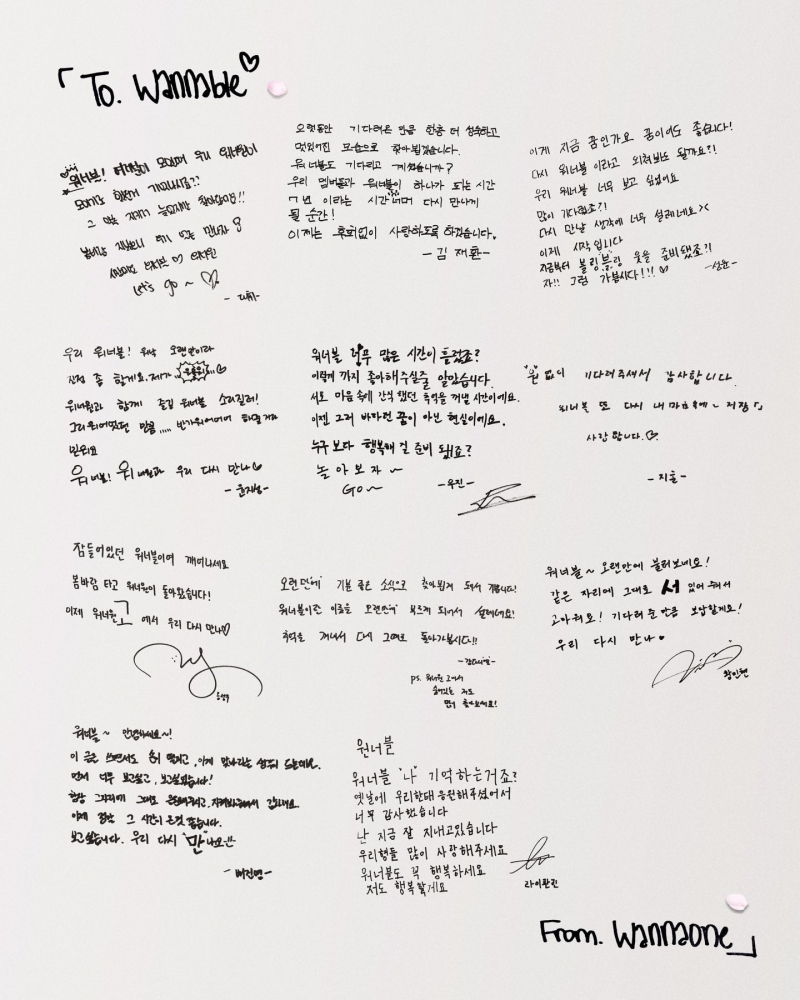 「To. Wannable♡
워너블! 
우리 워너원이
그
찾아왔어요!!
봄바람
Let's go ~ ♡
- 대휘-
오랫동안 기다려온 만큼 한층 더 성숙하고
멋있어진 모습으로 찾아뵙겠습니다.
워너블도 기다리고 계셨습니까?
우리 멤버들과 워너블이 하나가 되는 시간
7년 이라는 시간 너머 다시 만나게
될 순간!
이제는 후회없이 사랑하도록 하겠습니다.
- 김재환-
이게 지금 꿈인가요 꿈이어도 좋습니다!
다시 워너블 이라고 외쳐봐도 될까요?!
우리 워너블 너무 보고 싶었어요
많이 기다렸죠?!
다시 만날 생각에 너무 설레네요><
이제 시작입니다
지금부터 볼링블링 웃을 준비됐죠?!
자!! 그럼 가봅시다!!!♡
-성운-
우리 워너블! 워낙 오랜만이라
진정 좀 할게요. 제가
워너원과 함께 즐길 워너블 소리질러!
그리워했던 만큼....반가워
믿어요
워너블! 워너원과 우리 다시 만나♡
- 윤지성-
워너블 너무 많은 시간이 흘렀죠?
이렇게 까지 좋아해주실줄 알았습니다.
서로 마음 속에 간직 했던 추억을 꺼낼 시간이에요.
이젠 그저 바라던 꿈이 아닌 현실이에요.
누구 보다 행복해 질 준비 됐죠?
놀 아 보 자 ~
Go~
-우진-
"원"없이 기다려주셔서 감사합니다.
워너블 또 다시 내 마음에~ 저장「」
사랑합니다.♡
- 지훈-
잠들어있던 워너블이여 깨어나세요
봄바람 타고 워너원이 돌아왔습니다!
이제 워너원고 에서 우리 다시 만나♡
옹성우
오랜만에 기분 좋은 소식으로 찾아뵙게 돼서 기쁩니다!
워너블이란 이름을 오랜만에 부르게 되어서 설레네요!
추억을 꺼내서 다시 그때로 돌아가봅시다!!
ps. 워너원 고에서
숨어있는 저도
많이 찾아보세요!
워너블~ 오랜만에 불러보네요!
같은 자리에 그대로 서 있어 줘서
고마워요! 기다려준 만큼 보답할게요!
우리 다시 만나♥
황민현
워너블~ 안녕하세요~!
이 글을 쓰면서도 손이 떨리고, 이제 만난다는 실감이 드는데요.
먼저 너무 보고싶고, 보고싶었습니다!
항상 그자리에 그대로 응원해주시고, 지켜봐주셔서 감사해요.
이제 정말 그 시간이 온것 같습니다.
보고싶습니다. 우리 다시 "만"나요!!
- 배진영-
원너블
워너블 "나" 기억하는거죠?
옛날에 우리한태 응원해주셨어서
너무 감사했습니다
난 지금 잘 지내고있습니다
우리형들 많이 사랑해주세요
워너블도 꼭 행복하세요
저도 행복할게요
라이관린
From. Wannaone」